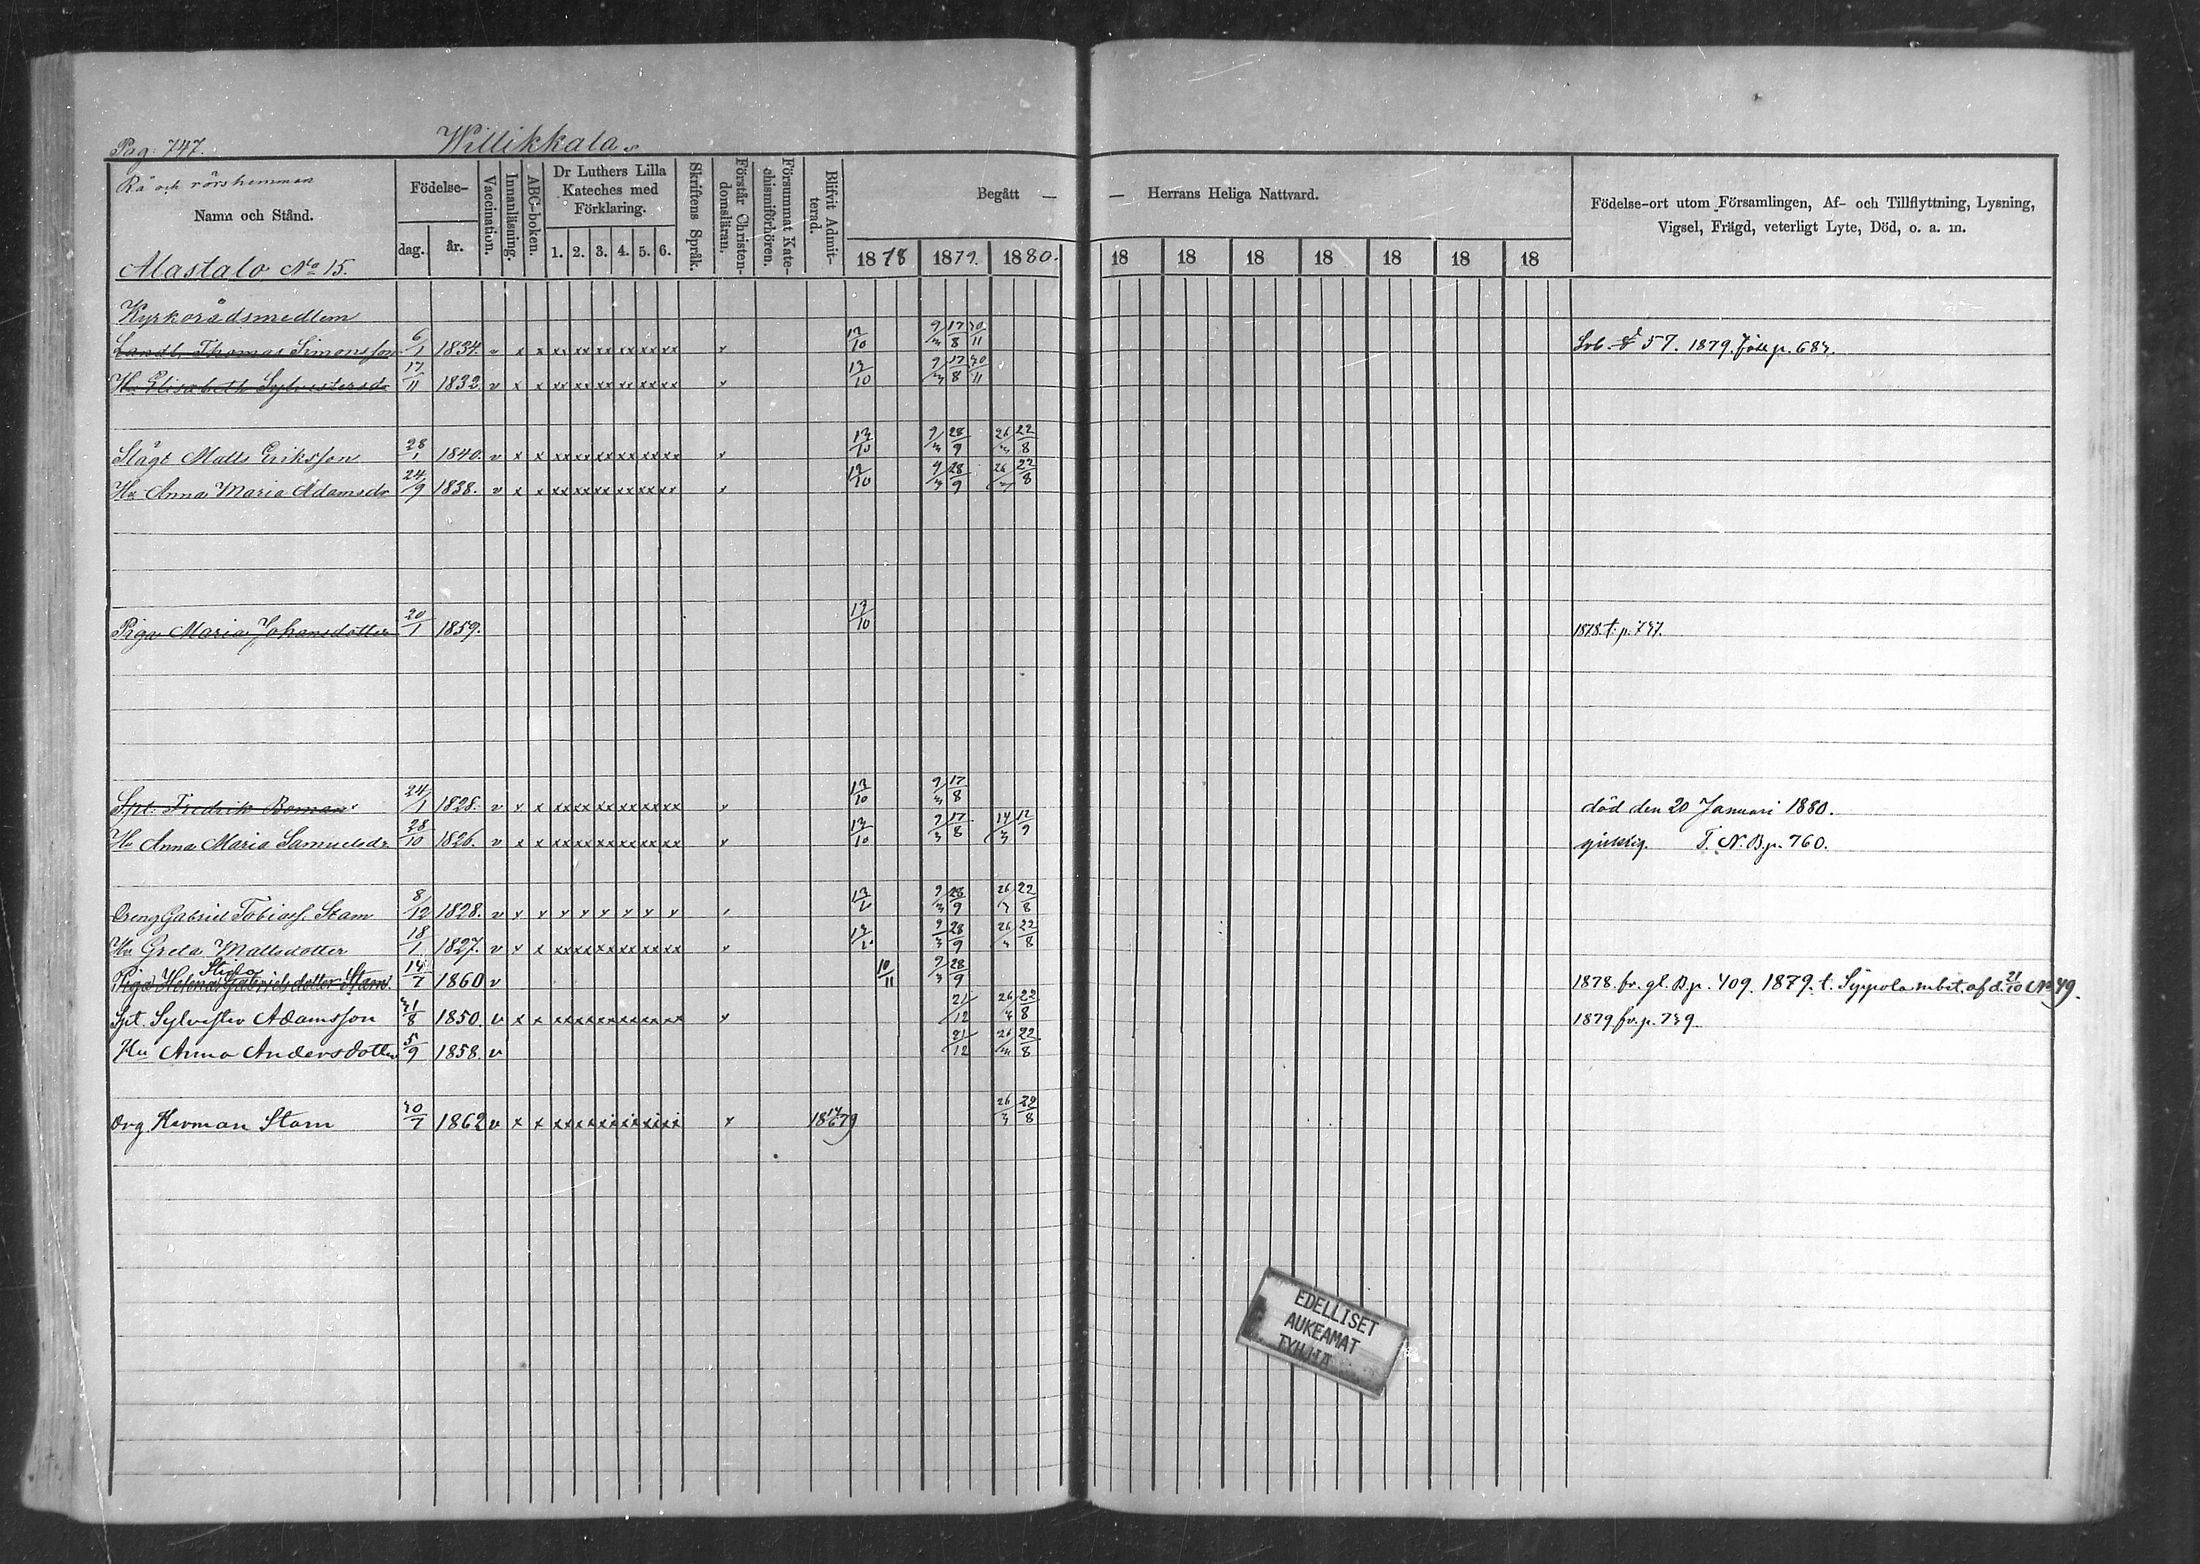 Pag: 747. Willikkala.
Rå och rörshemman
Namn och Stånd.
Födelse-
dag. år.
Vaccination.
Innanläsning.
ABC-boken.
Dr Luthers Lilla
Kateches med
Förklaring.
1. 2. 3. 4. 5. 6.
Skriftens Språk.
Förstår Christen-
domsläran.
Försummat Kate-
chismiförhören.
Blifvit Admit-
terad.
Begått — — Herrans Heliga Nattvard.
1878 1879. 1880. 18 18 18 18 18 18 18
Födelse-ort utom Församlingen, Af- och Tillflyttning, Lysning,
Vigsel, Frägd, veterligt Lyte, Död, o. a. m.
Alastalo No 15.
Kyrkorådsmedlem
Landb. Thomas Simonsson 6/1 1834. v x x xx xx xx xx xx xx v 13/10 9/3 17/8 30/11 57. 1879. p. 683.
Hu Elisabeth Sylvestersdr 17/11 1832. v x x xx xx xx xx xx xx v 13/10 9/3 17/8 30/11
Slägt Matts Eriksson 28/1 1840. v x x xx xx xx xx xx xx v 13/10 9/3 28/9 26/3 22/8
Hu Anna Maria Adamsdr 24/9 1838. v x x xx xx xx xx xx xx v 13/10 9/3 28/9 26/3 22/8
Piga Maria Johansdotter 20/1 1859. 13/10 1878. t. p. 737.
Spt. Fredrik Boman 24/1 1828. v x x xx xx xx xx xx xx v 13/10 9/3 17/8 död den 20 Januari 1880.
Hu Anna Maria Samuelsdr. 28/10 1826. v x x xx xx xx xx xx xx v 13/10 9/3 17/8 14/3 12/9 T. N. B. p. 760.
Dreng Gabriel Tobiass. Stam 8/12 1828. v x x x x x x x x 9/3 28/9 26/3 22/8
Hu Greta Mattsdotter 18/1 1827. v x x xx xx xx xx xx xx v 9/3 28/9 26/3 22/8
Piga Helena Gabrielsdotter Stam 14/7 1860 v 10/11 9/3 28/9 1878. fr. gl. B. p. 409. 1879. t. Sippola m. bet. af d. 21/10 No 49.
Spt. Sylvester Adamsson 31/8 1850. v x x xx xx xx xx xx xx v 21/12 26/3 22/8 1879 fr. p. 739
Hu Anna Andersdotter 5/9 1858. v 21/12 26/3 22/8
Drg. Herman Stam 30/7 1862 v x x xx xx xx xx xx xx v 1879 26/3 22/8
EDELLISET
AUKEAMAT
TYHJIÄ